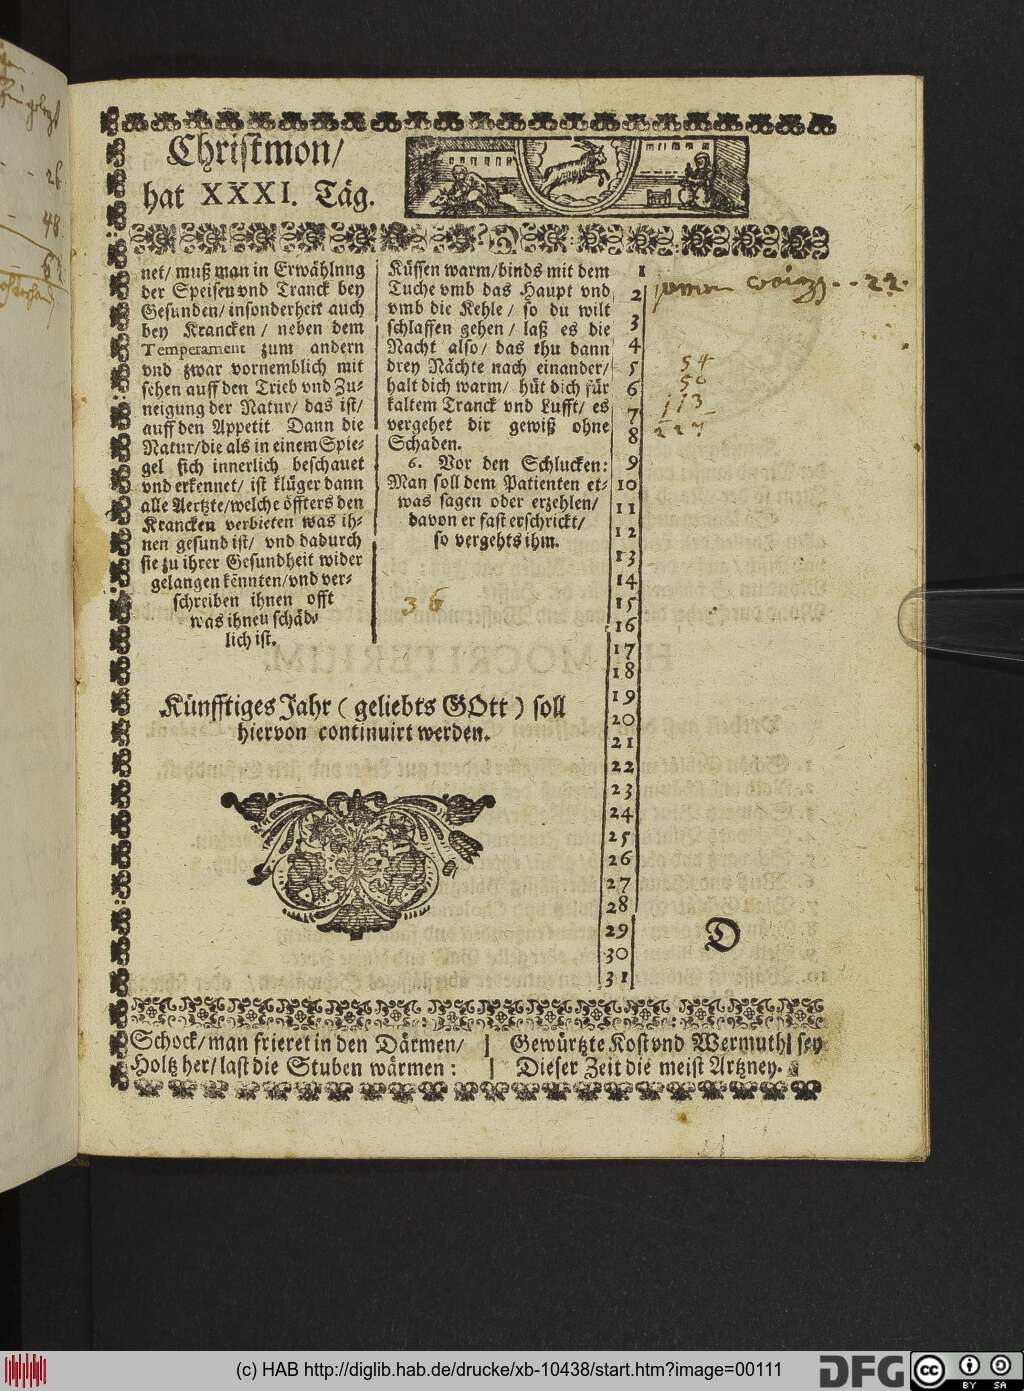 Christmon/
hat XXXI. Täg.
net/ muß man in Erwählnng
der Speisen vnd Tranck bey
Gesunden/ insonderheit auch
bey Krancken/ neben dem
Temperament zum andern
vnd zwar vornemblich mit
sehen auff den Trieb vnd Zu-
neigung der Natur/ das ist/
auff den Appetit Dann die
Natur/die als in einem Spie-
gel sich innerlich beschauet
vnd erkennet/ ist klüger dann
alle Aertzte/welche öffters den
Krancken verbieten was ih-
nen gesund ist/ vnd dadurch
sie zu ihrer Gesundheit wider
gelangen kënnten/vnd ver-
schreiben ihnen offt
was ihneu schäd-
lich ist.
Küssen warm/binds mit dem
Tuche vmb das Haupt vnd
vmb die Kehle/ so du wilt
schlaffen gehen/ laß es die
Nacht also/ das thu dann
drey Nächte nach einander/
halt dich warm/ hüt dich für
kaltem Tranck vnd Lufft/ es
vergehet dir gewiß ohne
Schaden.
6. Vor den Schlucken:
Man soll dem Patienten et-
was sagen oder erzehlen/
davon er fast erschrickt/
so vergehts ihm.
36
1
2
3
4
5
6
7
8
9
10
11
12
13
14
15
16
17
18
19
20
21
22
23
24
25
26
27
28
29
30
31
22.
54
50
113
227
Künfftiges Jahr ( geliebts GOtt ) soll
hiervon continuirt werden.
D
Schock/man frieret in den Därmen/
Holtz her/ last die Stuben wärmen :
Gewürtzte Kost vnd Wermuth sey
Dieser Zeit die meist Artzney.
26
48
(c) HAB http://diglib.hab.de/drucke/xb-10438/start.htm?image=00111
DFG
cc
BY SA